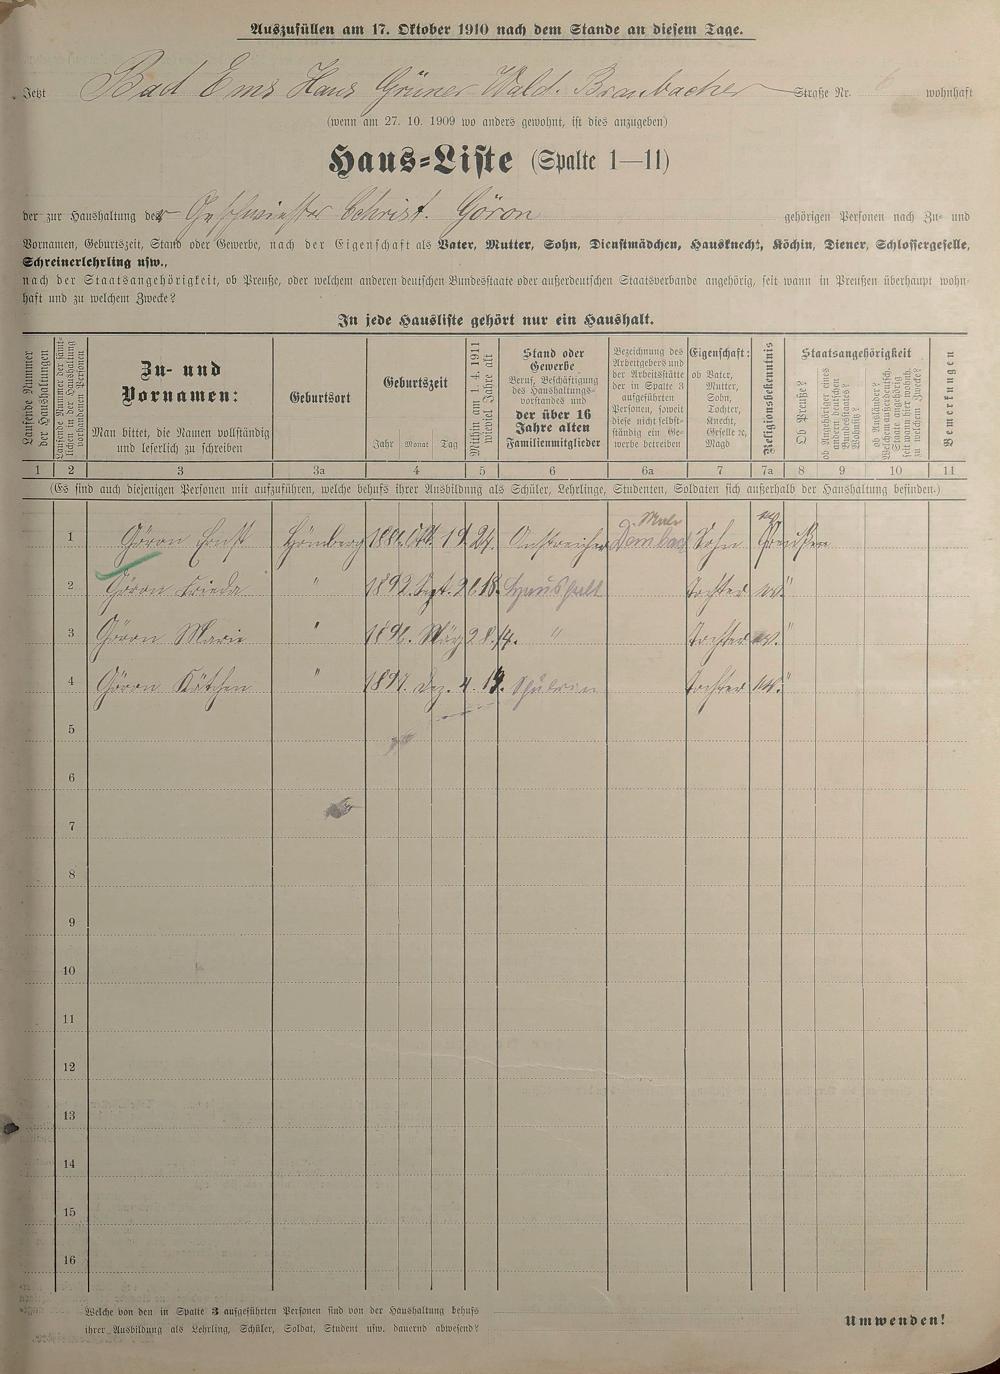 Auszufüllen am 17. Oktober 1910 nach dem Stande an diesem Tage.
Jetzt Bad Ems Haus Grüner Wald. Braubacher Straße Nr. wohnhaft
(wenn am 27. 10. 1909 wo anders gewohnt, ist dies anzugeben)
Haus-Liste (Spalte 1—11)
der zur Haushaltung der Geschwister Christ. Göron gehörigen Personen nach Zu- und
Vornamen, Geburtszeit, Stand oder Gewerbe, nach der Eigenschaft als Vater, Mutter, Sohn, Dienstmädchen, Hausknecht, Köchin, Diener, Schlossergeselle,
Schreinerlehrling usw.,
nach der Staatsangehörigkeit, ob Preuße, oder welchem anderen deutschen Bundesstaate oder außerdeutschen Staatsverbande angehörig, seit wann in Preußen überhaupt wohn-
haft und zu welchem Zwecke?
In jede Hausliste gehört nur ein Haushalt.
Laufende Nummer der Haushaltungen
Laufende Nummer der sämt-lich in der Haushaltung vorhandenen Personen
Zu- und
Vornamen:
Man bittet, die Namen vollständig
und leserlich zu schreiben
Geburtsort
Geburtszeit
Jahr Monat Tag
Mithin am 1. 4. 1911
wieviel Jahre alt
Stand oder
Gewerbe
Beruf, Beschäftigung
des Haushaltungs-
vorstandes und
der über 16
Jahre alten
Familienmitglieder
Bezeichnung des
Arbeitgebers und
der Arbeitsstätte
der in Spalte 3
aufgeführten
Personen, soweit
diese nicht selbst-
ständig ein Ge-
werbe betreiben
Eigenschaft:
ob Vater,
Mutter,
Sohn,
Tochter,
Knecht,
Geselle ec,
Magd
Religionsbekenntnis
Staatsangehörigkeit
Ob Preuße?
ob Angehöriger eines
andern deutschen
Bundesstaates?
Wohnsitz?
ob Ausländer?
Welchem außerdeutsch.
Staate angehörig
seit wann hier wohnh.
zu welchem Zwecke?
Bemerkungen
1 2 3 3a 4 5 6 6a 7 7a 8 9 10 11
(Es sind auch diejenigen Personen mit aufzuführen, welche behufs ihrer Ausbildung als Schüler, Lehrlinge, Studenten, Soldaten sich außerhalb der Haushaltung befinden.)
1 Göron Ernst Hömberg Okt. 19. 24. Anstreicher Sohn ev. Preußen
2 Göron Frieda " 1892. Sept. 26 18. Haushalt Tochter ev. "
3 Göron Marie " 1896. März 28. 14. " Tochter ev. "
4 Göron Kätchen " 1897. Dez. 4. 13. Schülerin Tochter ev. "
5
6
7
8
9
10
11
12
13
14
15
16
Welche von den in Spalte 3 aufgeführten Personen sind von der Haushaltung behufs
ihrer Ausbildung als Lehrling, Schüler, Soldat, Student usw. dauernd abwesend?
Umwenden!